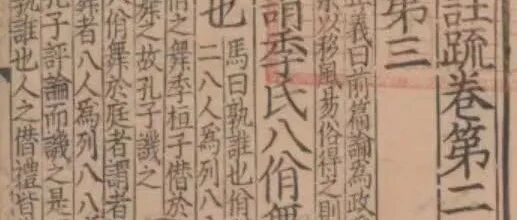 註疏卷第二
第三
正義曰前篇論為政
樂以移風易俗得之則
謂季氏八佾舞
也 馬曰孰誰也佾
二八人為列八
之舞季桓子僭於
之故孔子譏之
八佾舞於庭者謂者
舞者八人為列八八
孔子評論而譏之是
孰誰也人之僭禮皆